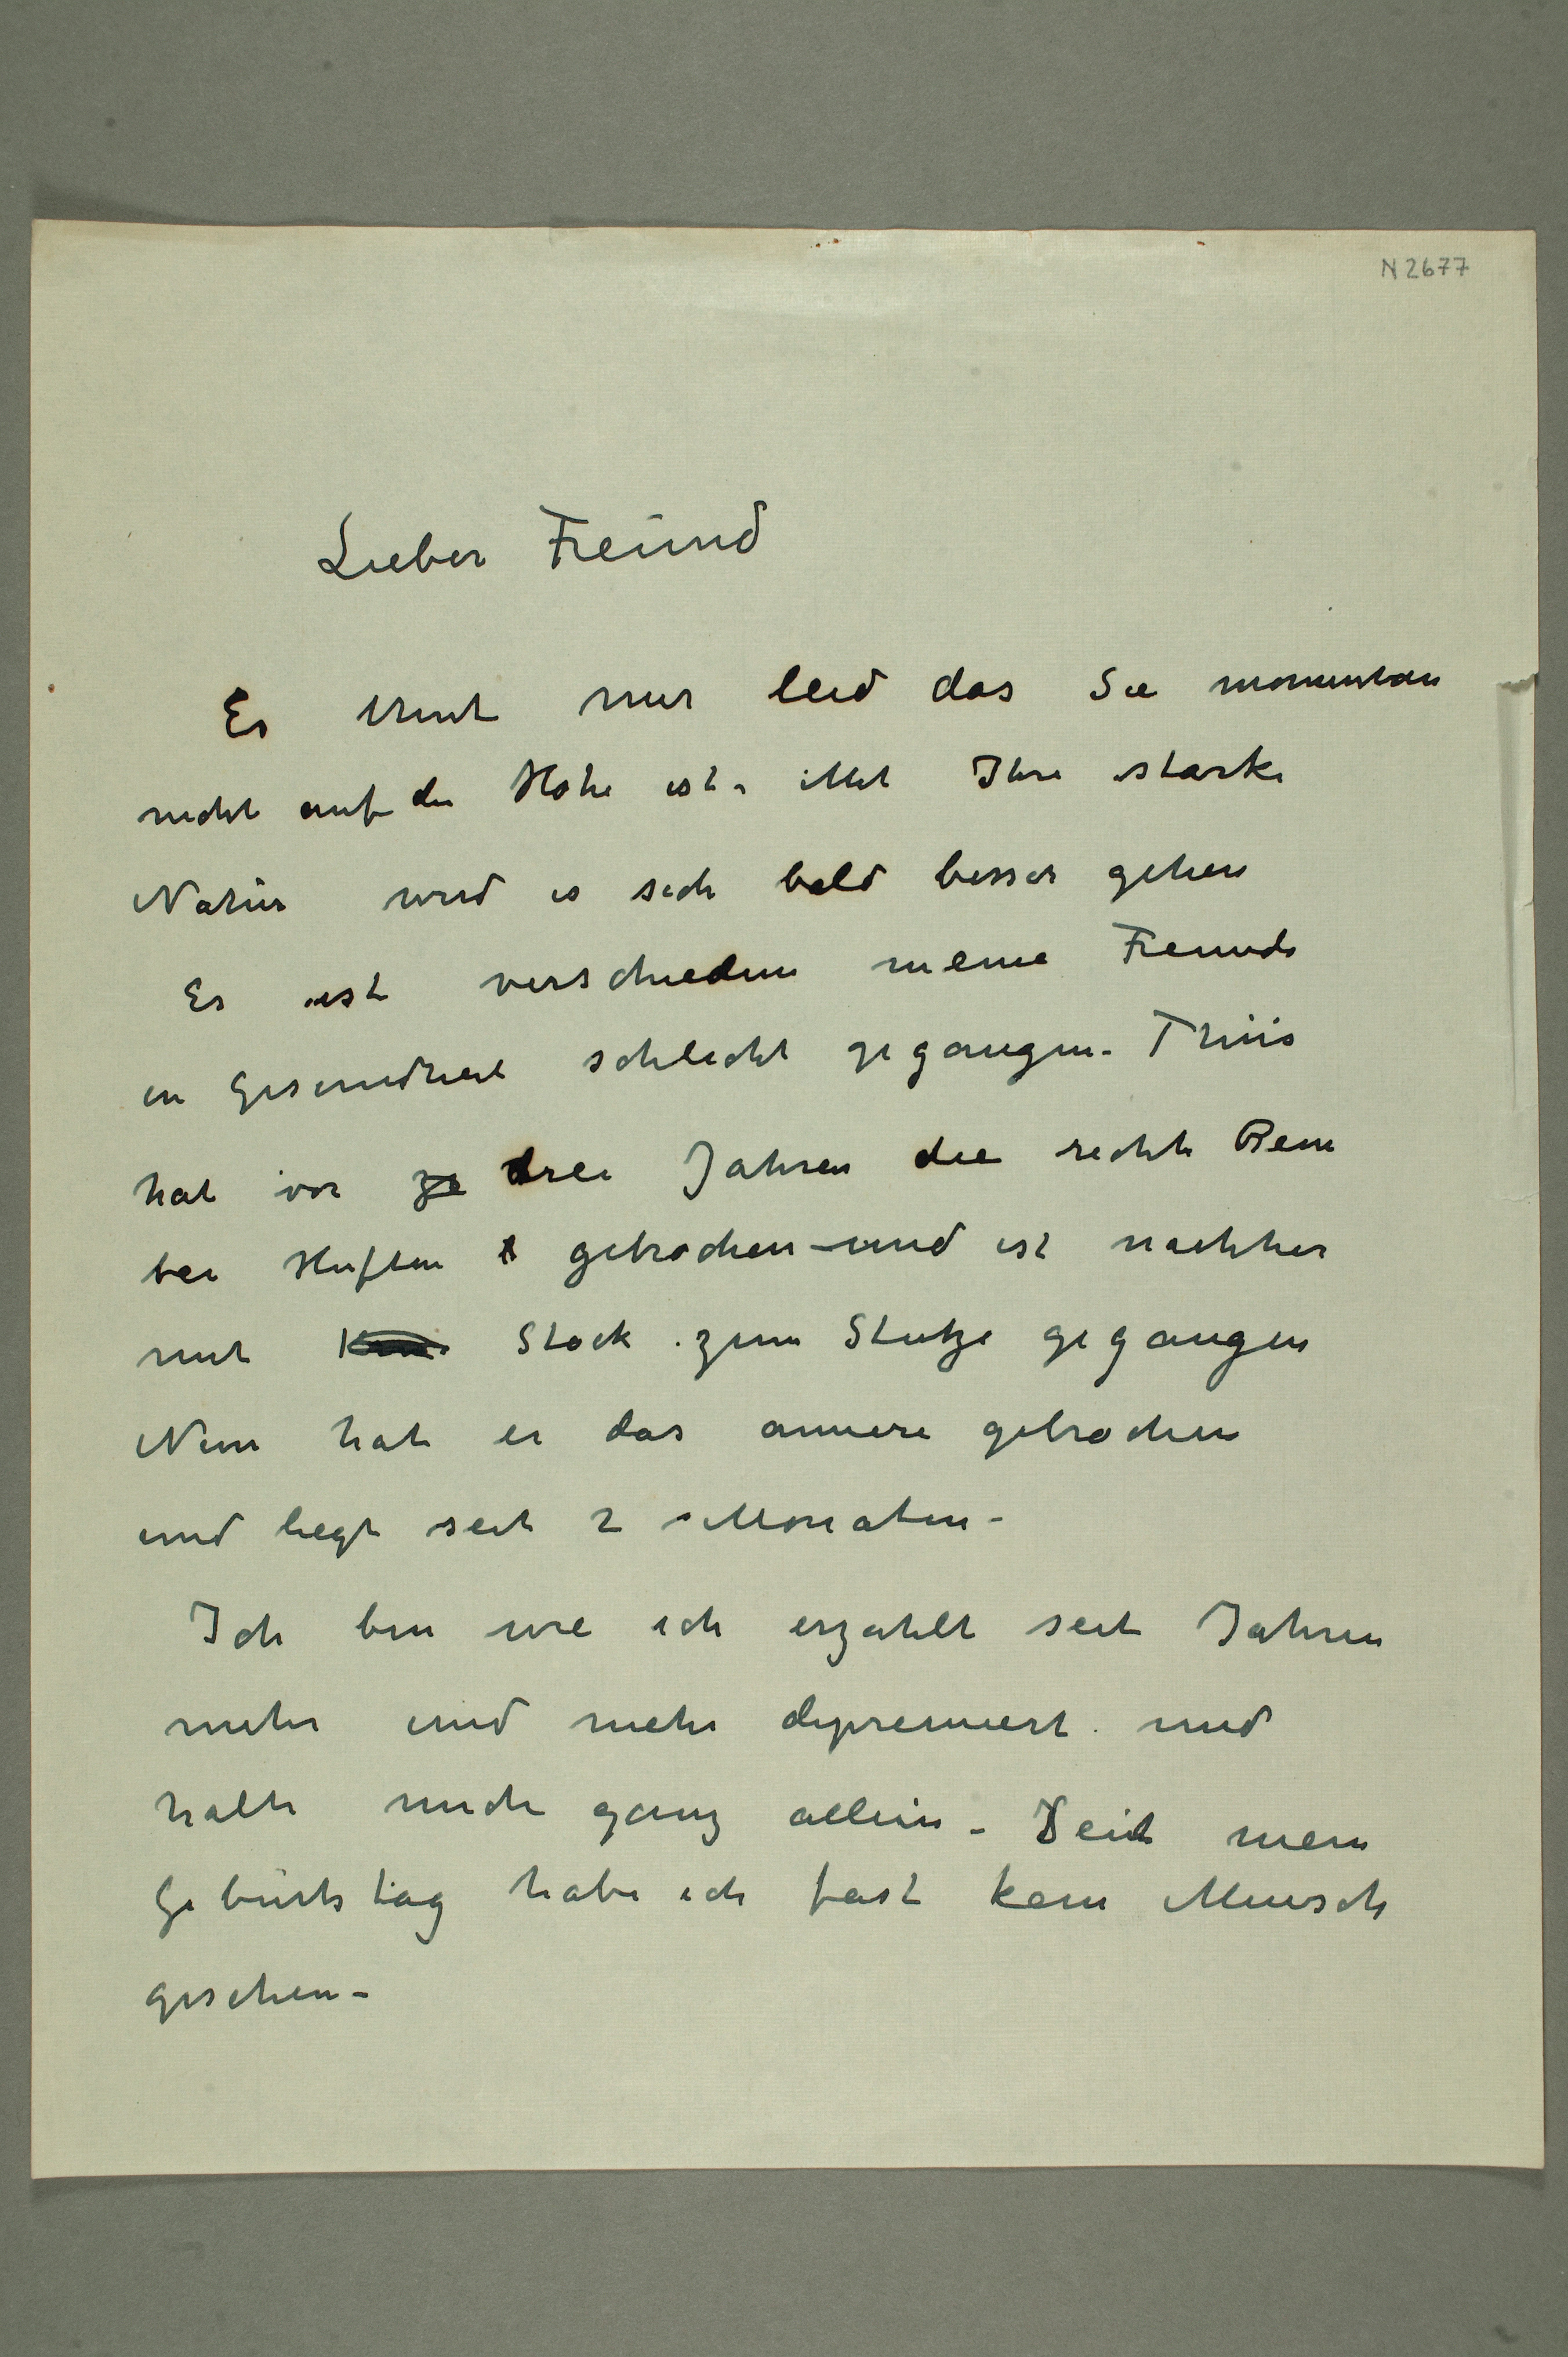 N 2677
Lieber Freund
Es thut mir leid das Sie momentan
nicht auf die Höhe ist. Mit Ihre starke
Natur wird es sich bald besser gehen
Es ist verschiedene meine Freunde
in Gesundheit schlecht gegangen – Thiis
hat vor ze drei Jahren die rechte Bein
bei Huften gebrochen – und ist nachher
mit Stock zum Stutze gegangen
Nun hat er das annere gebrochen
und liegt seit 2 Monaten –
Ich bin wie ich erzahlt seit Jahren
mehr und mehr depremiert und
halte mich ganz allein – Seit mein
Geburtstag habe ich fast kein Mensch
gesehen –